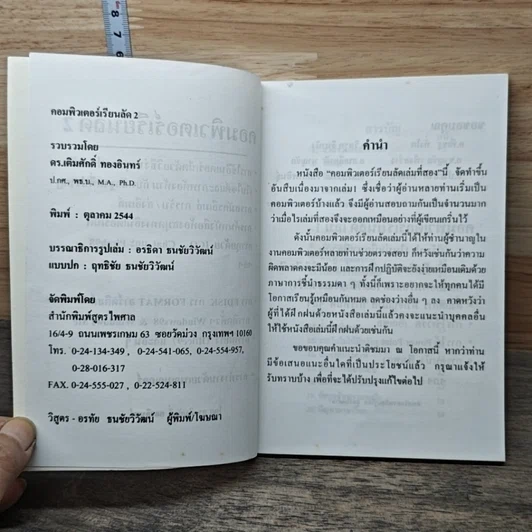 คอมพิวเตอร์เรียนลัด 2
รวบรวมโดย
ดร.เติมศักดิ์ ทองอินทร์
ป.กศ., พช.บ., M.A., Ph.D.
พิมพ์ : ตุลาคม 2544
บรรณาธิการรูปเล่ม : อรธิดา ธนชัยวิวัฒน์
แบบปก : ฤทธิชัย ธนชัยวิวัฒน์
จัดพิมพ์โดย
สำนักพิมพ์สูตรไพศาล
16/4-9 ถนนเพชรเกษม 63 ซอยวัดม่วง กรุงเทพฯ 10160
โทร. 0-24-134-349 , 0-24-541-065, 0-24-554-957,
0-28-016-317
FAX. 0-24-555-027 , 0-22-524-811
วิสูตร - อรทัย ธนชัยวิวัฒน์ ผู้พิมพ์/โฆษณา
คำนำ
หนังสือ "คอมพิวเตอร์เรียนลัดเล่มที่สอง"นี้ จัดทำขึ้น
อันสืบเนื่องมาจากเล่ม1 ซึ่งเชื่อว่าผู้อ่านหลายท่านเริ่มเป็น
คอมพิวเตอร์บ้างแล้ว จึงมีผู้อ่านสอบถามกันเป็นจำนวนมาก
ว่าเมื่อไรเล่มที่สองจึงจะออกเหมือนอย่างที่ผู้เขียนเกริ่นไว้
ดังนั้นคอมพิวเตอร์เรียนลัดเล่มนี้ได้ให้ท่านผู้ชำนาญใน
งานคอมพิวเตอร์หลายท่านช่วยตรวจสอบ ก็หวังเช่นกันว่าความ
ผิดพลาดคงจะมีน้อย และการฝึกปฏิบัติจะยังง่ายเหมือนเดิมด้วย
ภาษาการชี้นำธรรมดา ๆ ทั้งนี้ก็เพราะอยากจะให้ทุกคนได้มี
โอกาสเรียนรู้เหมือนกันหมด ลดช่องว่างอื่น ๆ ลง คาดหวังว่า
ผู้ที่ได้ฝึกด้วยหนังสือเล่มนี้แล้วคงจะแนะนำบุคคลอื่น
ให้ใช้หนังสือเล่มนี้ฝึกฝนด้วยเช่นกัน
ขอขอบคุณคำแนะนำติชมมา ณ โอกาสนี้ หากว่าท่าน
มีข้อเสนอแนะอื่นใดที่เป็นประโยชน์แล้ว กรุณาแจ้งให้
รับทราบบ้าง เพื่อที่จะได้ปรับปรุงแก้ไขต่อไป